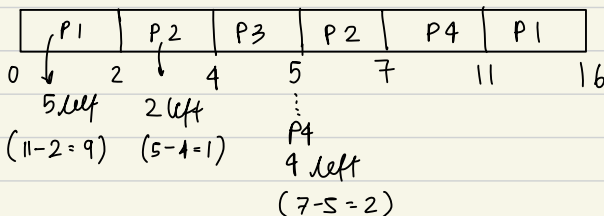 P1 P2 P3 P2 P4 P1
0 2 4 5 7 11 16
5 left 2 left P4
(11-2=9) (5-4=1) 4 left
(7-5=2)